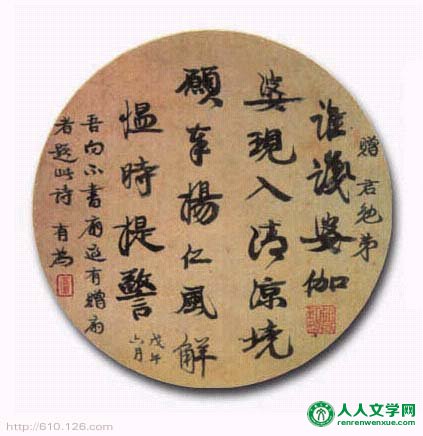 贈君勉弟
誰識婆伽
婆現入清凉境
願奉揚仁風解
愠時提警
戊午
六月
吾向不書扇近有贈扇
者題此詩 有為
http://610.126.com/
人人文学网
renrenwenxue.com